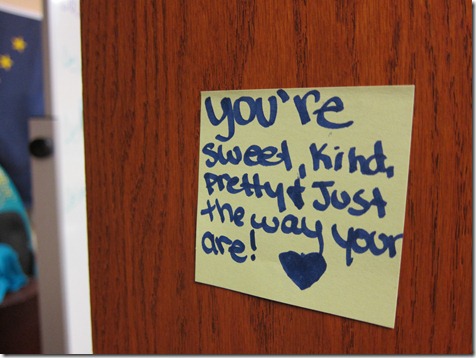 you're
sweet, kind,
pretty & Just
the way your
are!